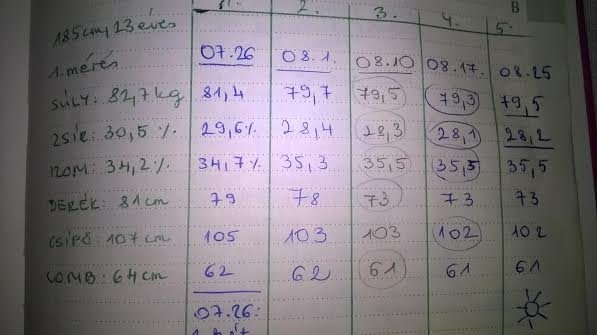 1. 2. 3. 4. 5. B
185cm, 23 éves
1. mérés 07.26 08.1. 08.10 08.17. 08.25
SÚLY: 82,7 kg 81,4 79,7 79,5 79,3 79,5
ZSÍR: 30,5 % 29,6% 28,4 28,3 28,1 28,2
IZOM: 34,2% 34,7% 35,3 35,5 35,5 35,5
DERÉK: 81 cm 79 78 73 73 73
CSÍPŐ: 107 cm 105 103 103 102 102
COMB: 64 cm 62 62 61 61 61
07.26: